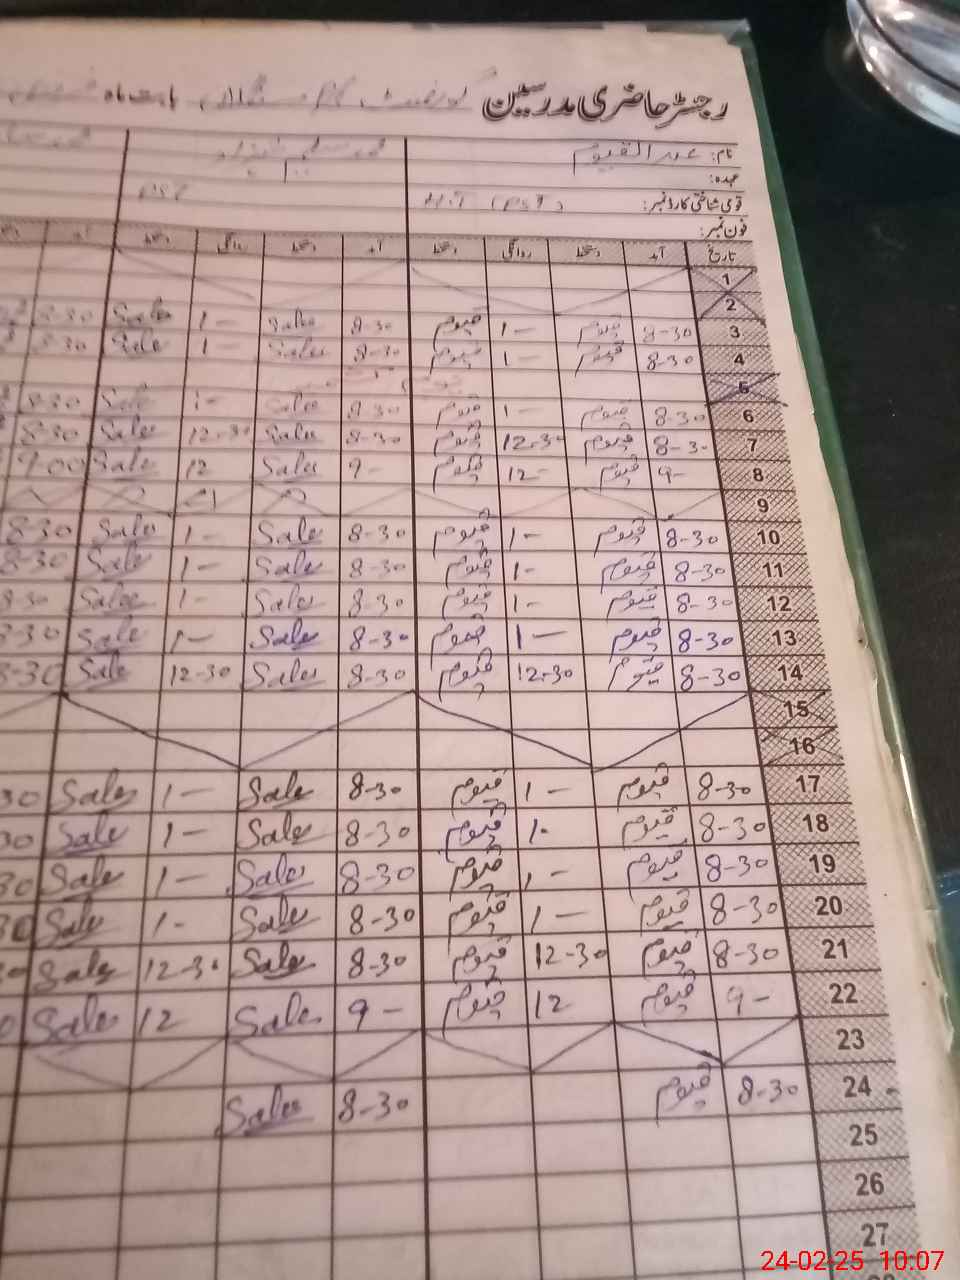 رجسٹر حاضری مدرسین گورنمنٹ بابت ماہ
نام: عبدالقیوم محمد سلیم
عہدہ:
قومی شناختی کارڈ نمبر: (PST) PST
فون نمبر:
تاریخ آمد دستخط روانگی دستخط آمد دستخط روانگی دستخط آمد
1
2
3 8-30 قیوم 1- قیوم 8-30 Sales 1- Sales 8-30
4 8-30 قیوم 1- قیوم 8-30 Sales 1 Sale 8-30
5
6 8-30 قیوم 1- قیوم 8-30 Sales 1- Sale 8-30
7 8-30 قیوم 12-30 قیوم 8-30 Sales 12-30 Sales 8-30
8 9- قیوم 12- قیوم 9- Sales 12 Sales 9-00
9
10 8-30 قیوم 1- قیوم 8-30 Sales 1- Sales 8-30
11 8-30 قیوم 1- قیوم 8-30 Sales 1- Sales 8-30
12 8-30 قیوم 1- قیوم 8-30 Sales 1- Sales 8-30
13 8-30 قیوم 1- قیوم 8-30 Sales 1- Sale 8-30
14 8-30 قیوم 12-30 قیوم 8-30 Sales 12-30 Sale 8-30
15
16
17 8-30 قیوم 1- قیوم 8-30 Sales 1- Sales 30
18 8-30 قیوم 1- قیوم 8-30 Sales 1- Sale 30
19 8-30 قیوم 1- قیوم 8-30 Sales 1- Sales 30
20 8-30 قیوم 1- قیوم 8-30 Sales 1- Sale 30
21 8-30 قیوم 12-30 قیوم 8-30 Sales 12-30 Sales 30
22 9- قیوم 12 قیوم 9- Sales 12 Sales 0
23
24 8-30 قیوم 8-30 Sales
25
26
27
24-02-25 10:07